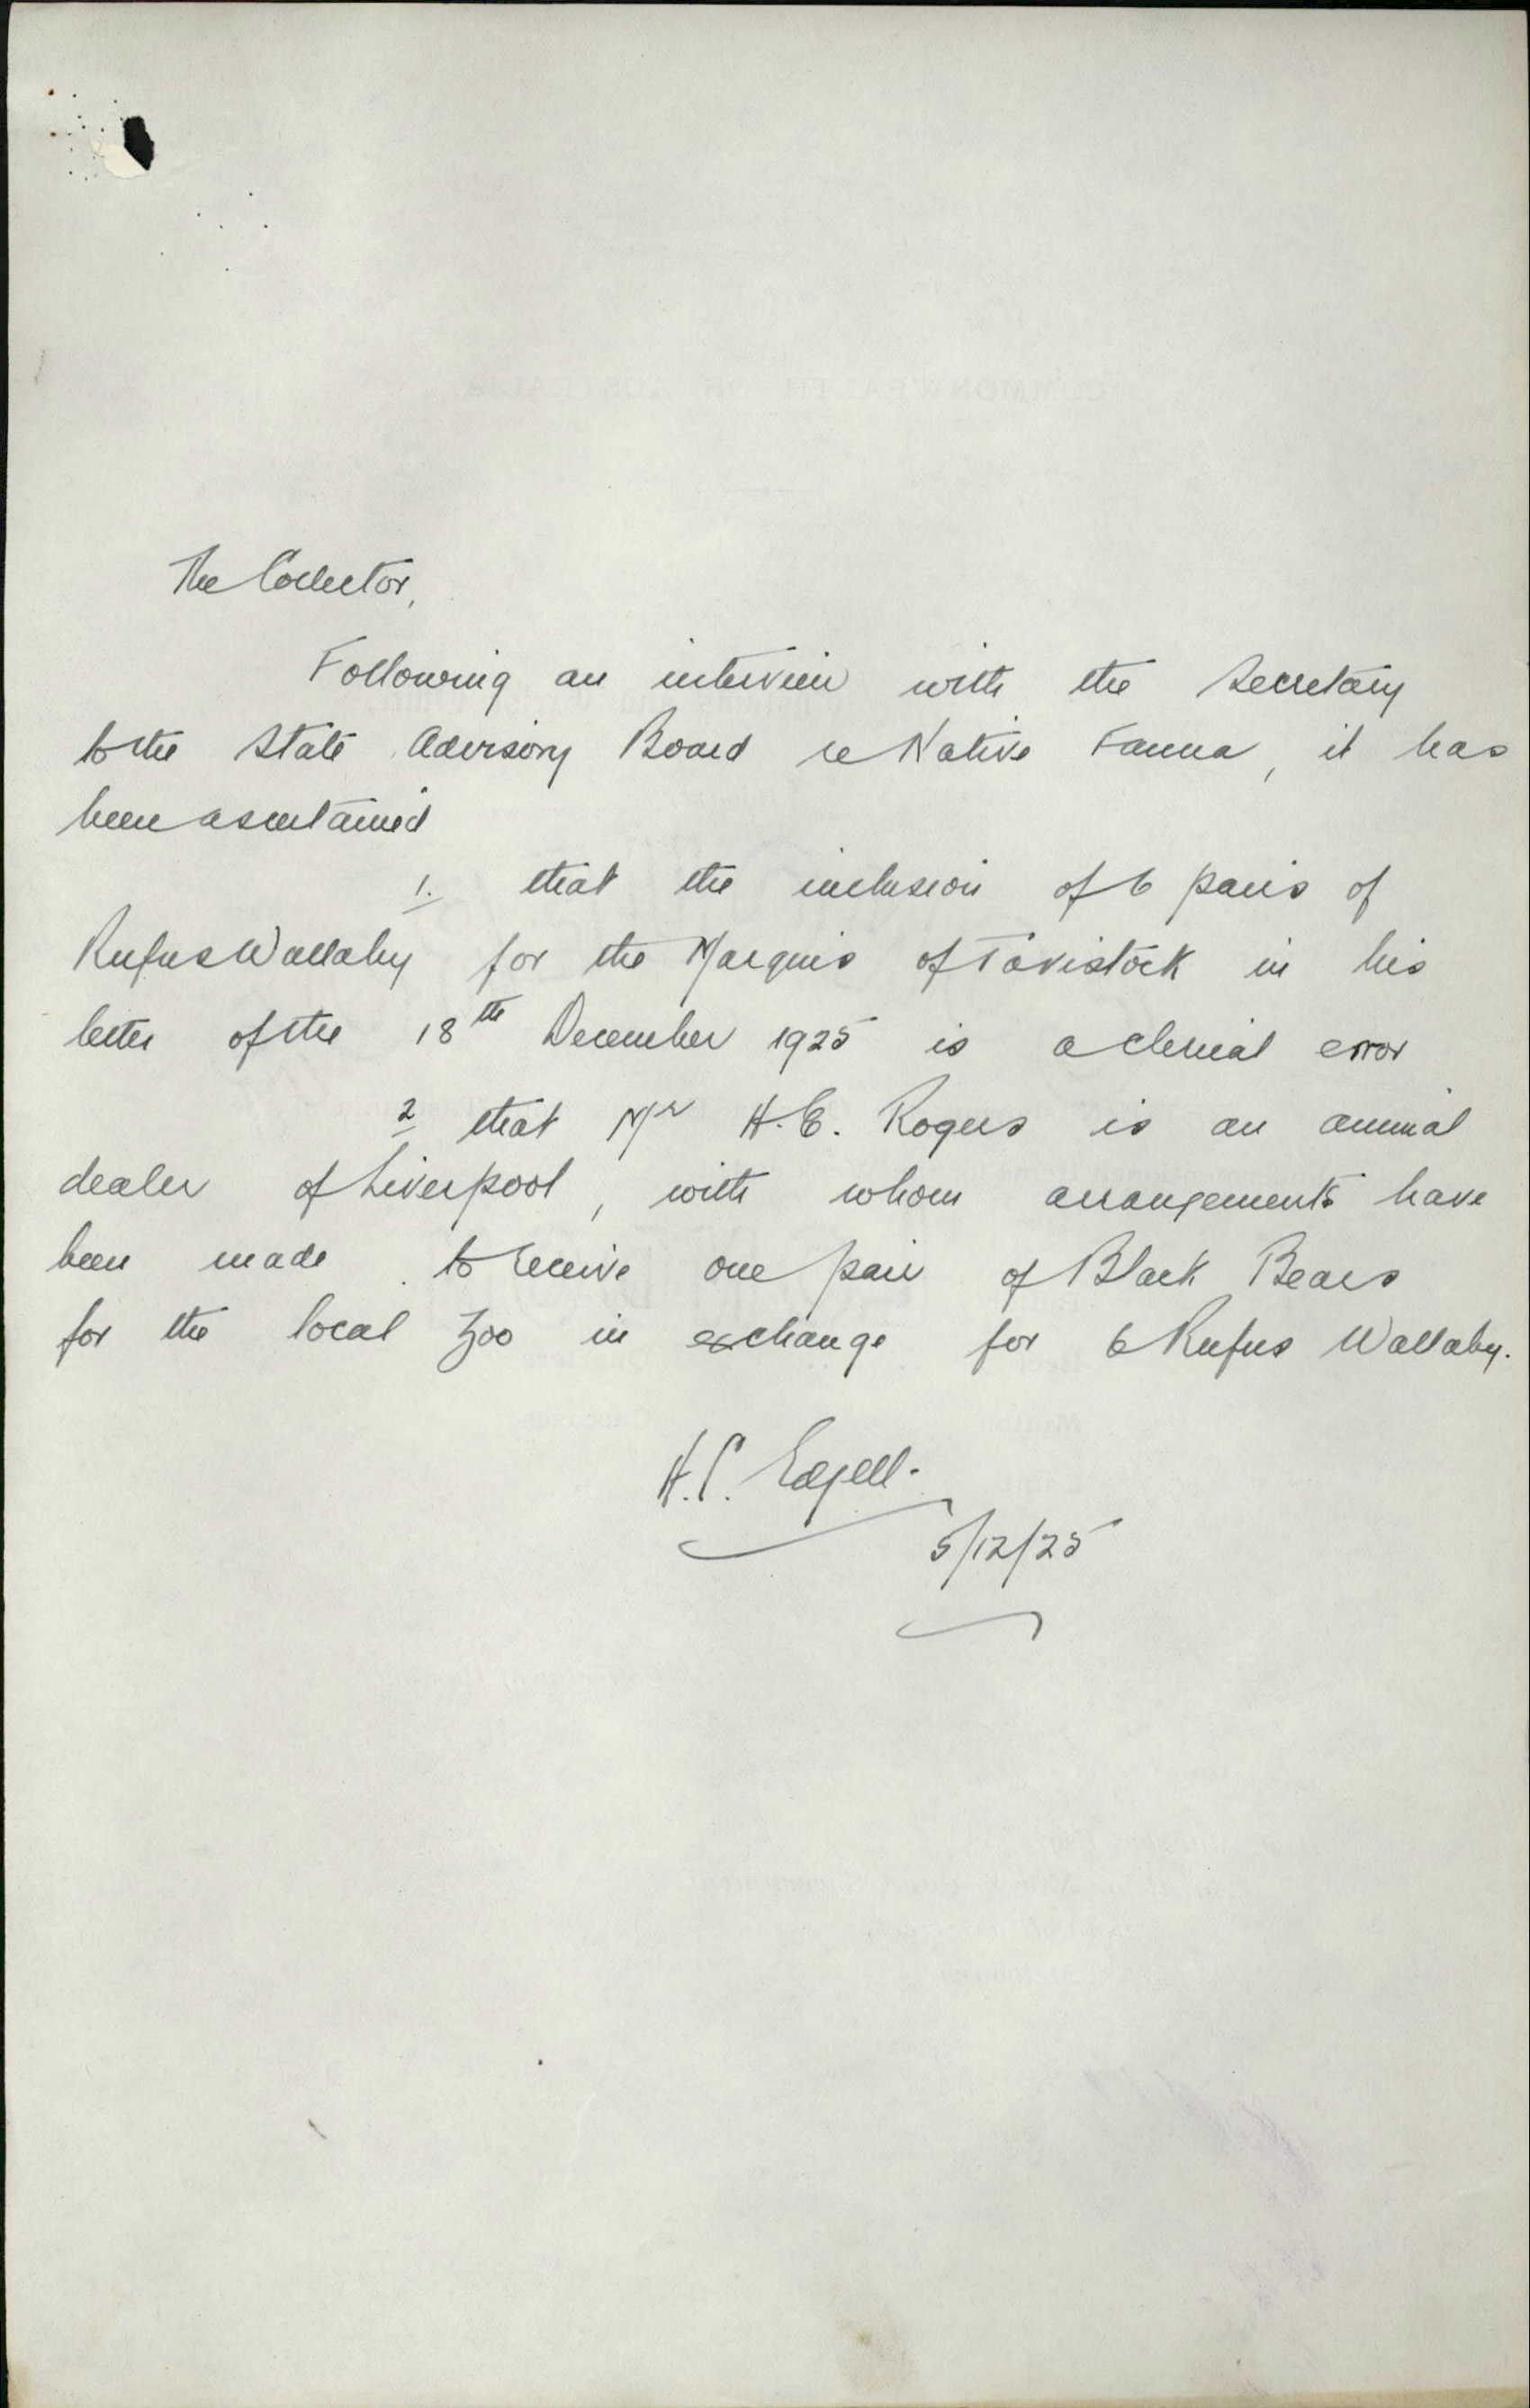 The Collector,
Following an interview with the Secretary
to the State Advisory Board re Native Fauna, it has
been ascertained
1. that the inclusion of 6 pairs of
Rufus Wallaby for the Marquis of Tavistock in his
letter of the 18th December 1925 is a clerical error
2 that Mr H.E. Rogers is an animal
dealer of Liverpool, with whom arrangements have
been made to receive one pair of Black Bears
for the local Zoo in exchange for 6 Rufus Wallaby.
Edgell.
5/12/25